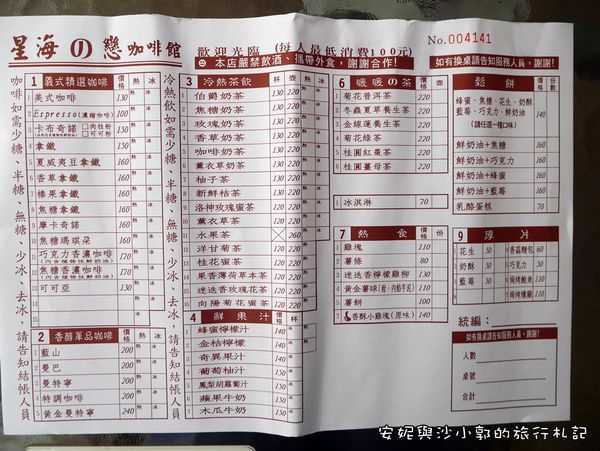 星海の戀咖啡館
歡迎光臨 (每人最低消費100元)
No.004141
本店嚴禁飲酒、攜帶外食，謝謝合作!
如有換桌請告知服務人員，謝謝!
咖啡如需少糖、半糖、無糖、少冰、去冰，請告知結帳人員
1 義式精選咖啡 價格 熱 冰
1 美式咖啡 130 熱 冰
2 Espresso(濃縮咖啡) 100
3 卡布奇諾 □肉桂粉 □可可粉 150
4 拿鐵 150
5 夏威夷豆拿鐵 160
6 香草拿鐵 160
7 榛果拿鐵 160
8 焦糖拿鐵 160
9 摩卡奇諾 160
10 焦糖瑪琪朵 160
11 巧克力香濃咖啡 (內含植物性鮮奶油) 170
12 焦糖香濃咖啡 (內含植物性鮮奶油) 170
13 可可亞 130
14
15
2 香醇單品咖啡 價格 熱 冰
1 藍山 200
2 曼巴 200
3 曼特寧 200
4 特調咖啡 200
5 黃金曼特寧 240
冷熱飲如需少糖、半糖、無糖、少冰、去冰，請告知結帳人員
3 冷熱茶飲 杯 壺 熱 冰
1 伯爵奶茶 130 220
2 焦糖奶茶 130 220
3 玫瑰奶茶 130 220
4 香草奶茶 130 220
5 咖啡奶茶 130 220
6 薰衣草奶茶 130 220
7 柚子茶 130 220
8 新鮮桔茶 130 220
9 洛神玫瑰蜜茶 120 220
10 薰衣草茶 120 220
11 水果茶 260
12 洋甘菊茶 120 220
13 桂花蜜茶 120 220
14 果香薄荷草本茶 120 220
15 迷迭香玫瑰花茶 120 220
16 向陽菊花蜜茶 120 220
4 鮮果汁 價格 杯
1 蜂蜜檸檬汁 140
2 金桔檸檬 140
3 奇異果汁 140
4 葡萄柚汁 150
5 鳳梨胡蘿蔔汁 150
6 蘋果牛奶 150
7 木瓜牛奶 150
6 暖暖の茶 壺
1 菊花普洱茶 220
2 冬蟲夏草養生茶 220
3 金線蓮養生茶 220
4 菊花綠茶 220
5 桂圓紅棗茶 220
6 桂圓薑母茶 220
1 冰淇淋 70
7 熱食 價格 份
1 雞塊 110
2 薯條 80
3 迷迭香檸檬雞柳 130
4 黃金薯球(甜，內餡芋泥) 130
5 薯餅 100
6 香酥小雞塊(原味) 140
鬆餅 價格 份數
蜂蜜、焦糖、花生、奶酥
藍莓、巧克力、鮮奶油
(請任選一種口味) 140
鮮奶油+焦糖
鮮奶油+巧克力
鮮奶油+蜂蜜
鮮奶油+藍莓
乳酪蛋糕 70
9 厚片
花生 50
奶酥 50
藍莓 50
香蒜麵包 60
巧克力 50
焗烤鮪魚 110
焗烤燻雞 110
統編：
如有換桌請告知服務人員，謝謝!
人數
桌號
合計
安妮與沙小郭的旅行札記